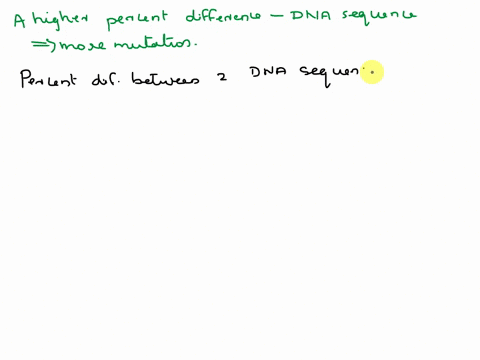 A higher percent difference – DNA sequence
⇒ more mutatios.
Percent dif. betwees 2 DNA sequen